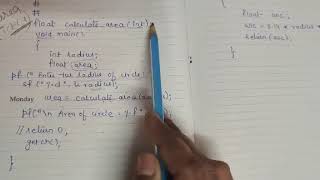 #
#
float calculate_area(int)
void main()
{
int radius;
float area;
pf(" Enter the radius of circle
Monday area = calculate_area(
pf("\n Area of circle = %f"
// return 0;
getch();
}
{
float are;
are = 3.14 * radius *
return (are);
}